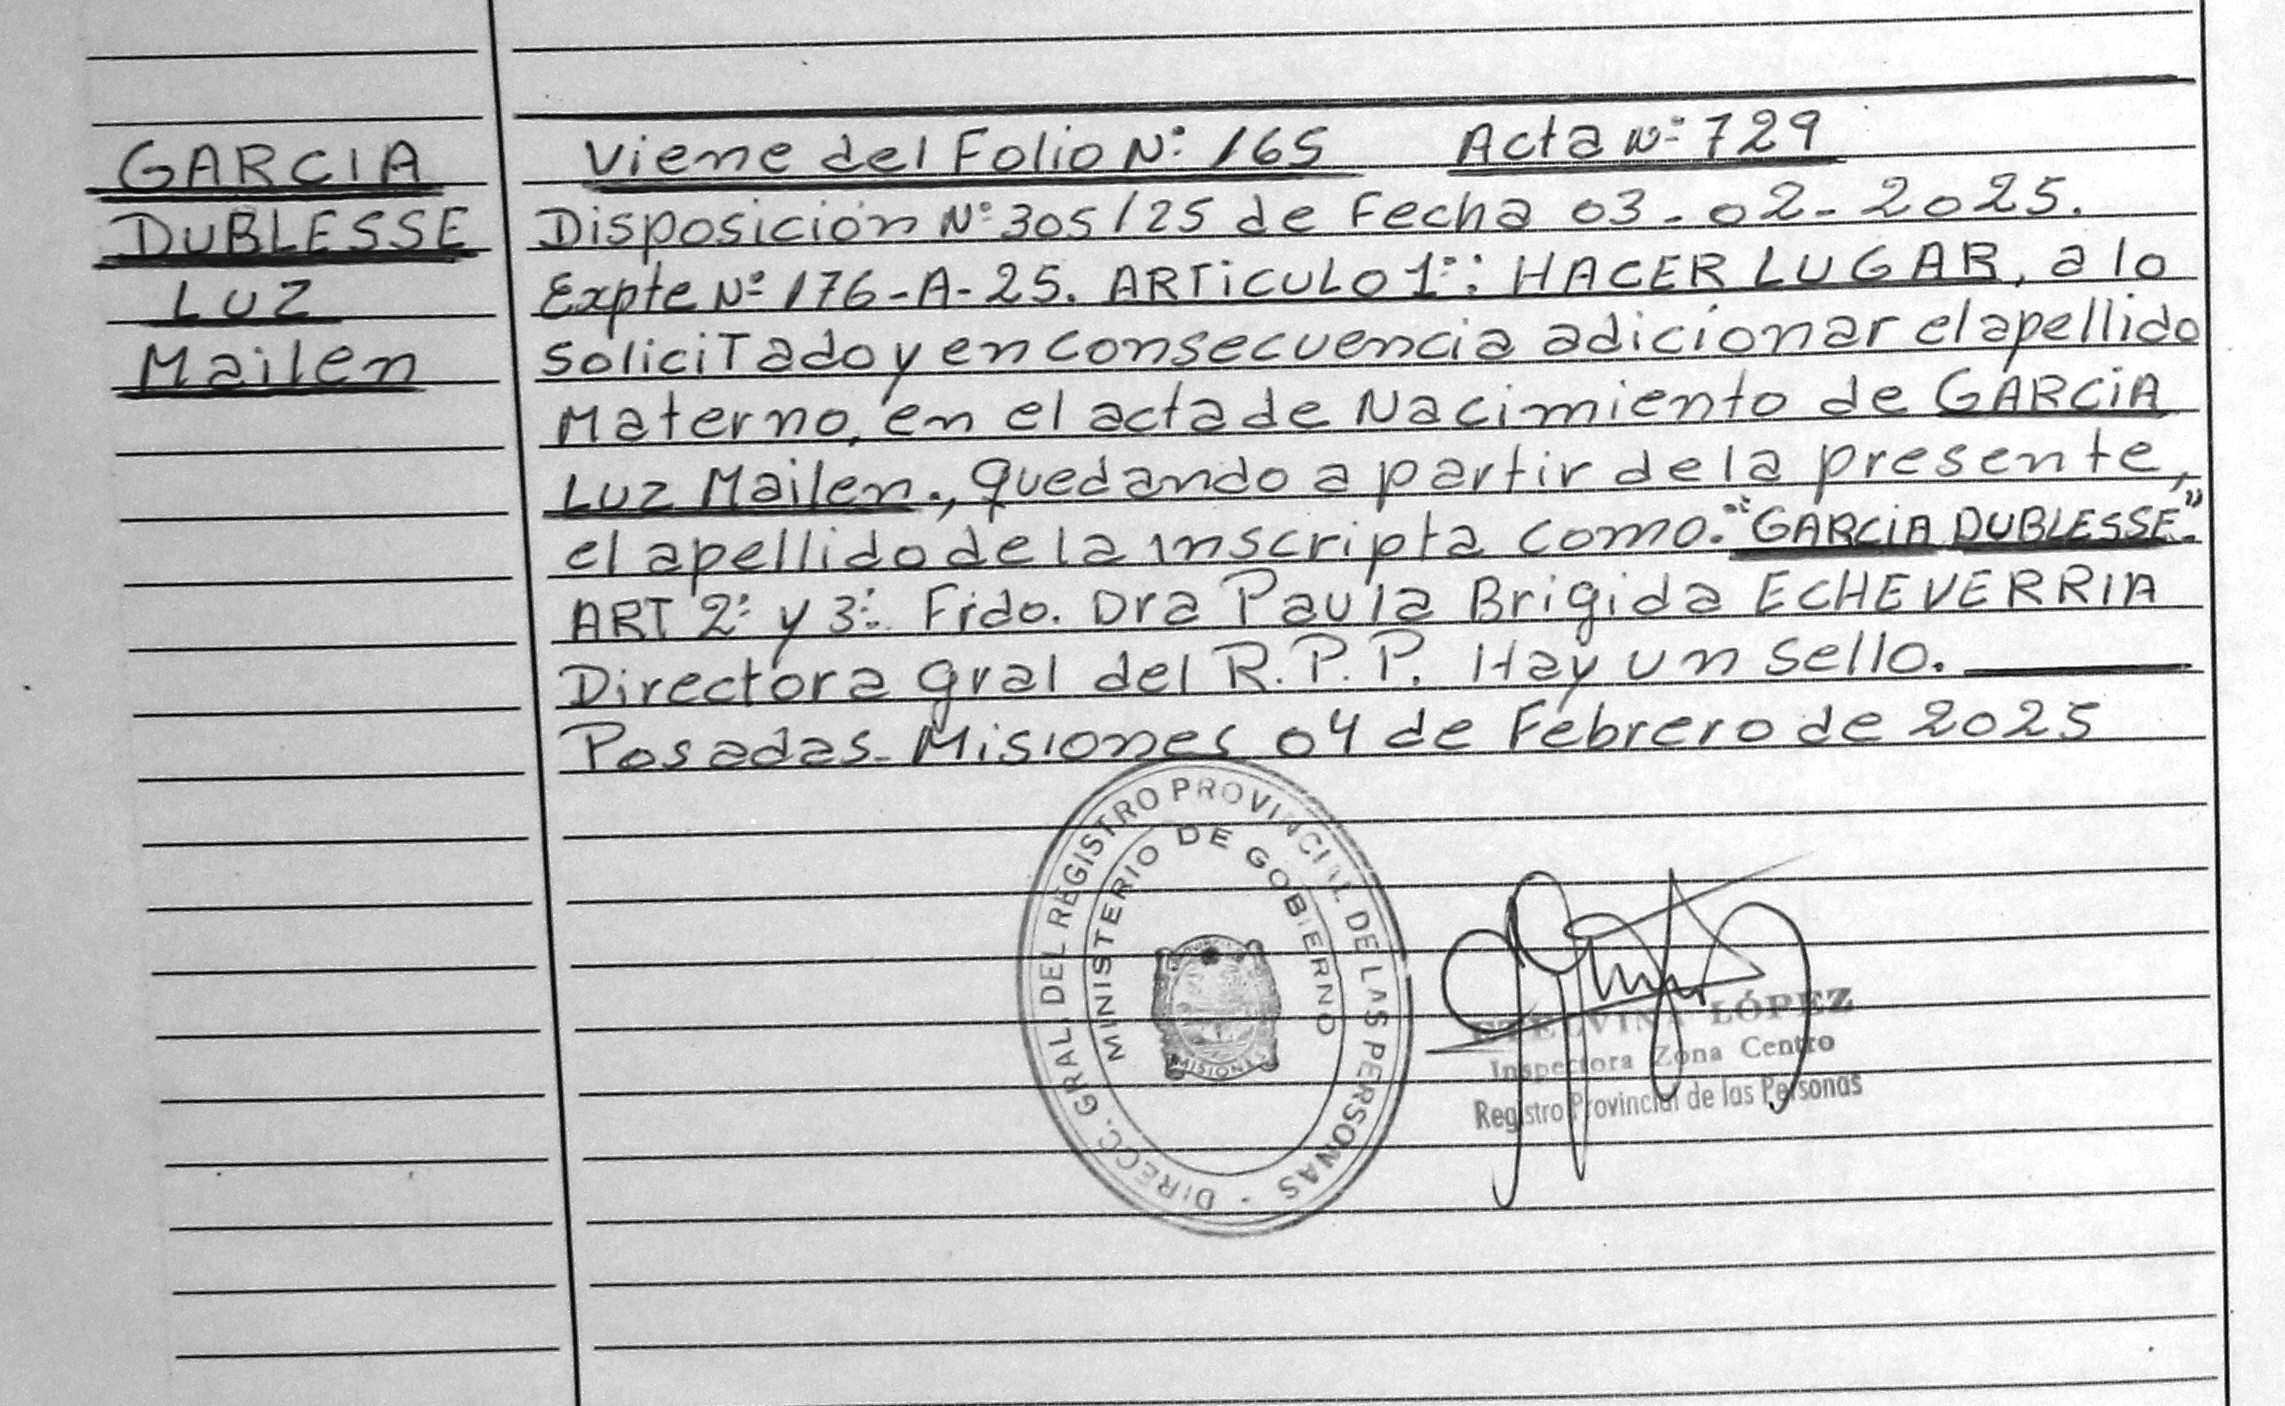 GARCIA
DUBLESSE
LUZ
Mailen
Viene del Folio Nº 165 Acta Nº 729
Disposición Nº 305/25 de Fecha 03-02-2025.
Expte Nº 176-A-25. ARTICULO 1º: HACER LUGAR, a lo
soliciTado y en consecuencia adicionar el apellido
Materno, en el acta de Nacimiento de GARCIA
LUZ Mailen., quedando a partir de la presente,
el apellido de la inscripta como: "GARCIA DUBLESSE".
ART 2º y 3º. Fido. Dra Paula Brigida ECHEVERRIA
Directora gral del R.P.P. Hay un sello.
Posadas-Misiones 04 de Febrero de 2025
DIRECC. GRAL. DEL REGISTRO PROVINCIAL DE LAS PERSONAS -
MINISTERIO DE GOBIERNO
MISIONES
LÓPEZ
Inspectora Zona Centro
Registro Provincial de las Personas